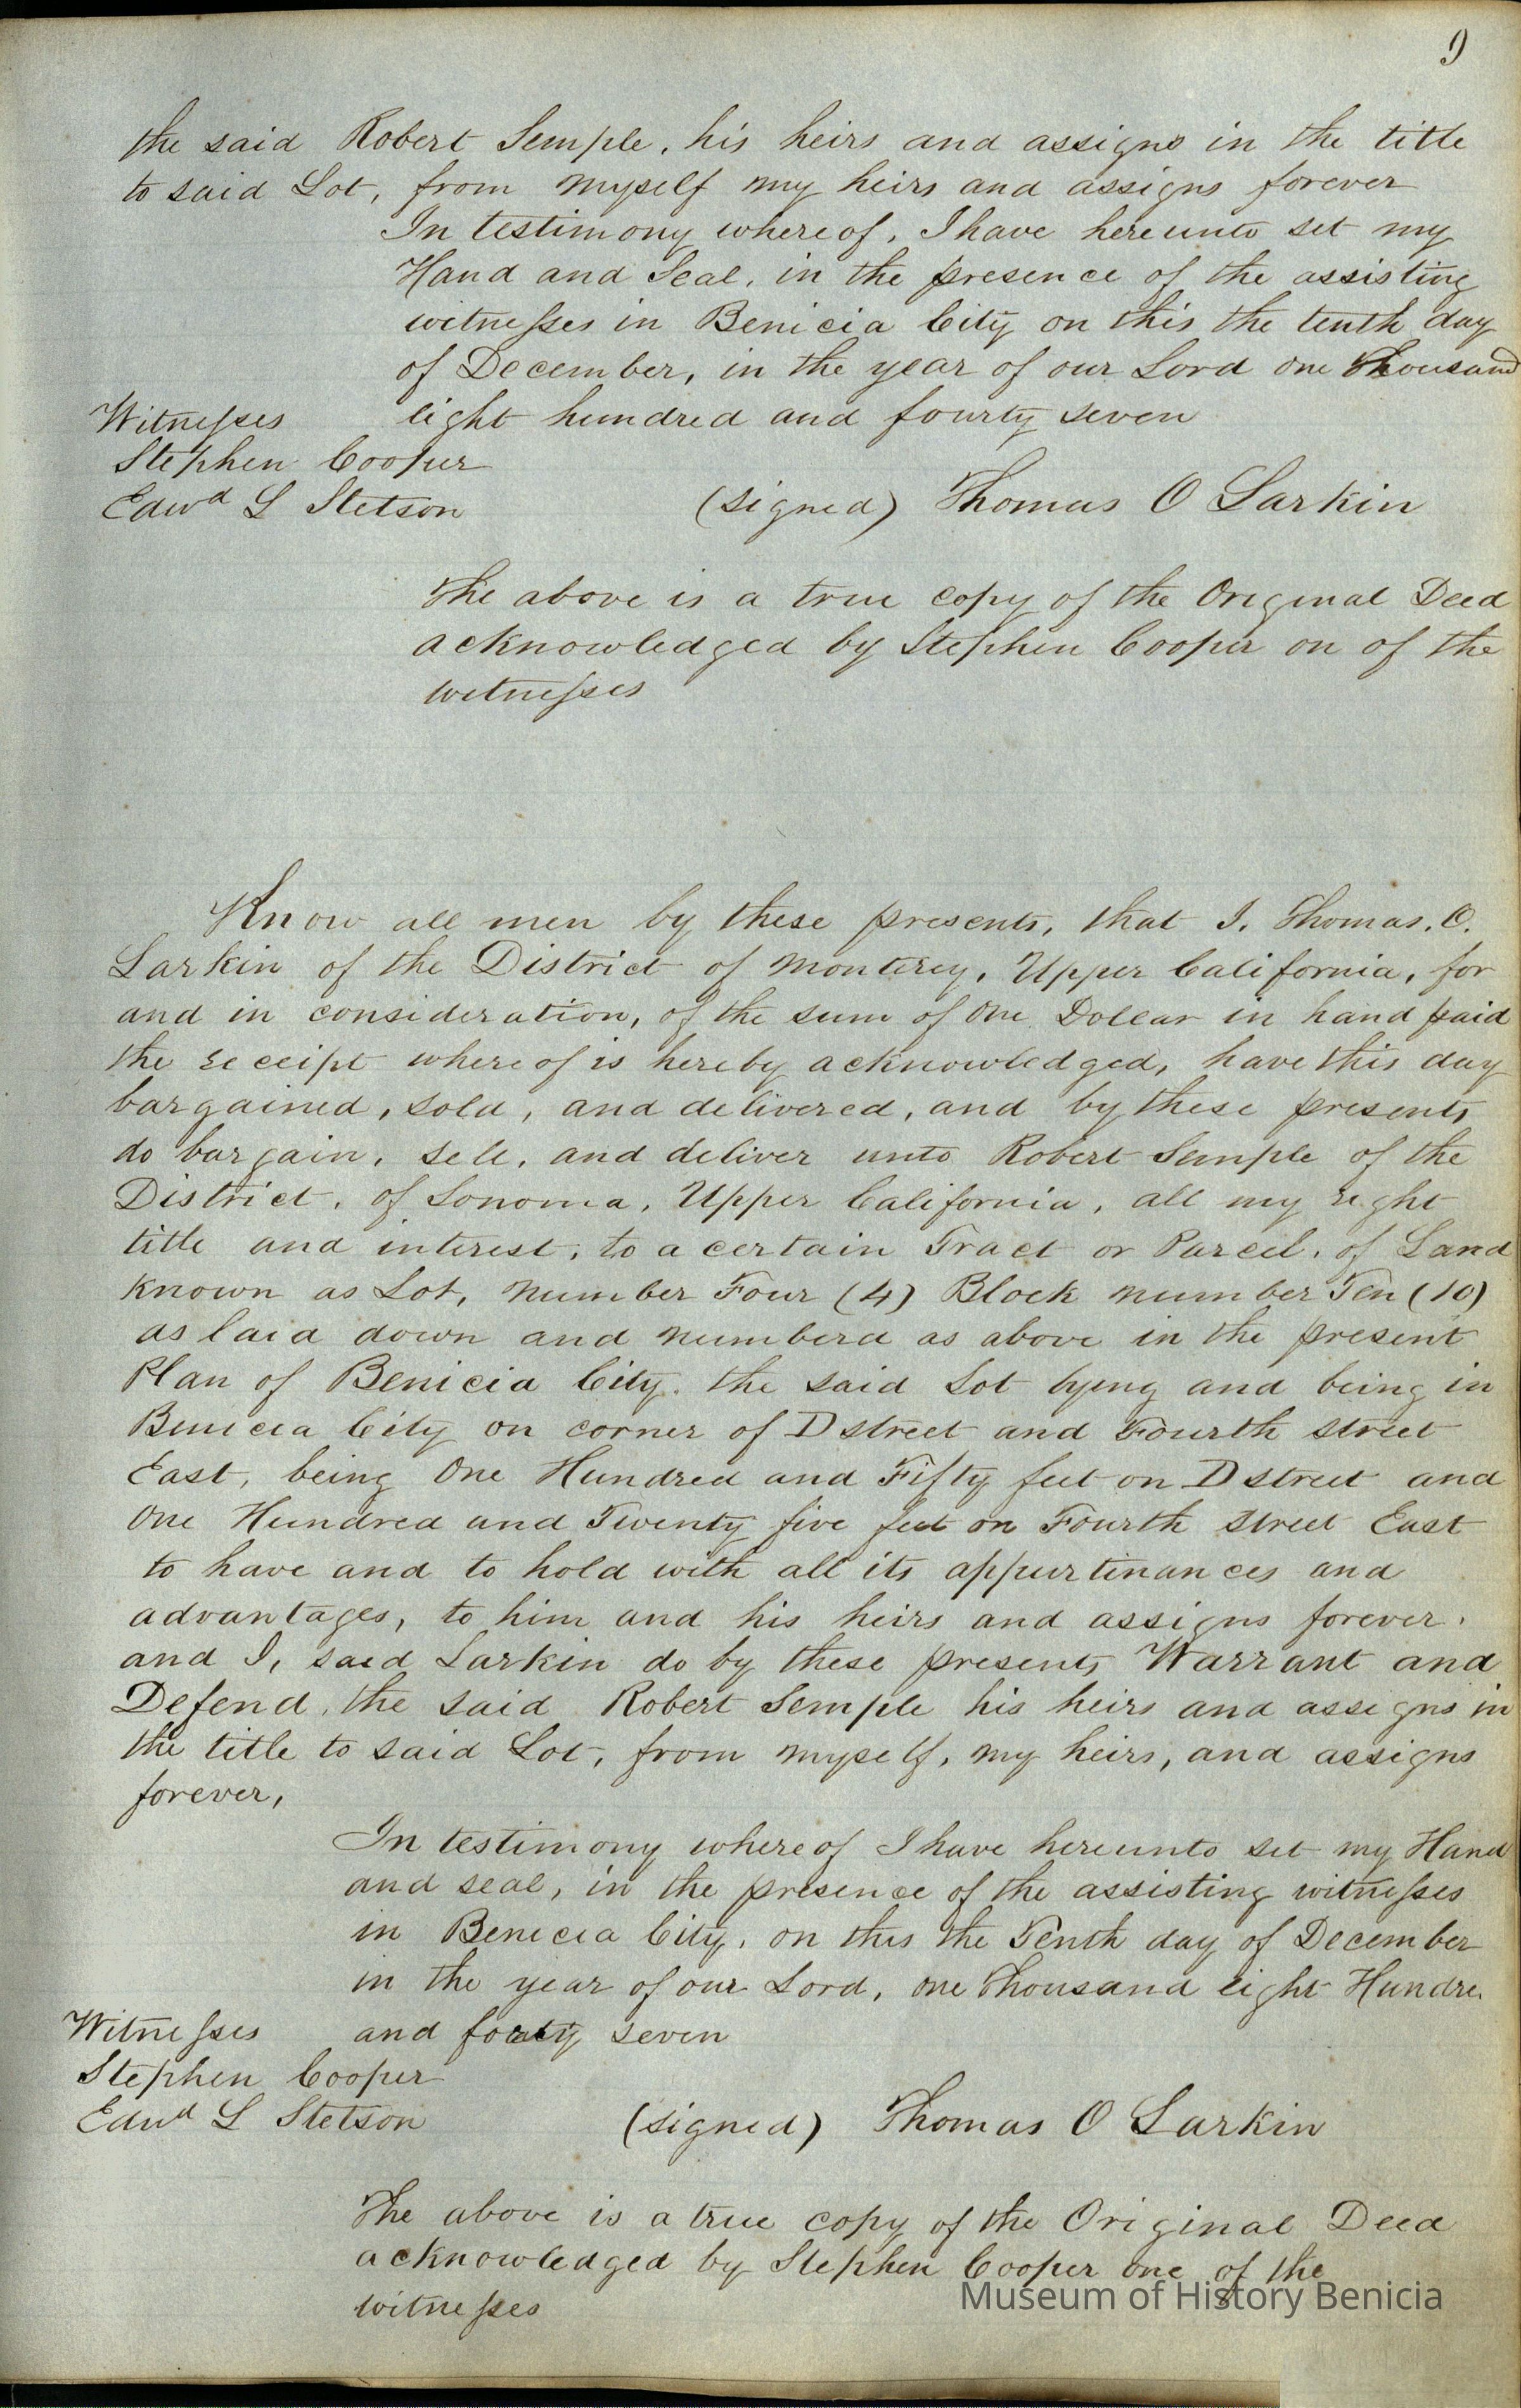 9
the said Robert Semple, his heirs and assigns in the title
to said Lot, from myself my heirs and assigns forever
In testimony whereof, I have hereunto set my
Hand and Seal, in the presence of the assisting
witnesses in Benicia City on this the tenth day
of December, in the year of our Lord one Thousand
Witnesses eight hundred and fourty seven
Stephen Cooper
Edwd L Stetson (signed) Thomas O Larkin
The above is a true copy of the Original Deed
acknowledged by Stephen Cooper on of the
witnesses
Know all men by these presents, that I, Thomas, O.
Larkin of the District of Monterey, Upper California, for
and in consideration, of the sum of One Dollar in hand paid
the receipt whereof is hereby acknowledged, have this day
bargained, sold, and delivered, and by these presents
do bargain, sell, and deliver unto Robert Semple of the
District, of Sonoma, Upper California, all my right
title and interest, to a certain Tract or Parcel, of Land
Known as Lot, Number Four (4) Block number Ten (10)
as laid down and numberd as above in the present
Plan of Benicia City. the said Lot lying and being in
Benicia City on corner of D street and Fourth street
East, being One Hundred and Fifty feet on D street and
One Hundred and Twenty five feet on Fourth Street East
to have and to hold with all its appurtinances and
advantages, to him and his heirs and assigns forever.
and I, said Larkin do by these presents Warrant and
Defend, the said Robert Semple his heirs and assigns in
the title to said Lot, from myself, my heirs, and assigns
forever,
In testimony whereof I have hereunto set my Hand
and seal, in the presence of the assisting witnesses
in Benicia City, on this the Tenth day of December
in the year of our Lord, one Thousand eight Hundre
Witnesses and forty seven
Stephen Cooper
Edwd L Stetson (signed) Thomas O Larkin
The above is a true copy of the Original Deed
acknowledged by Stephen Cooper one of the
witnesses
Museum of History Benicia